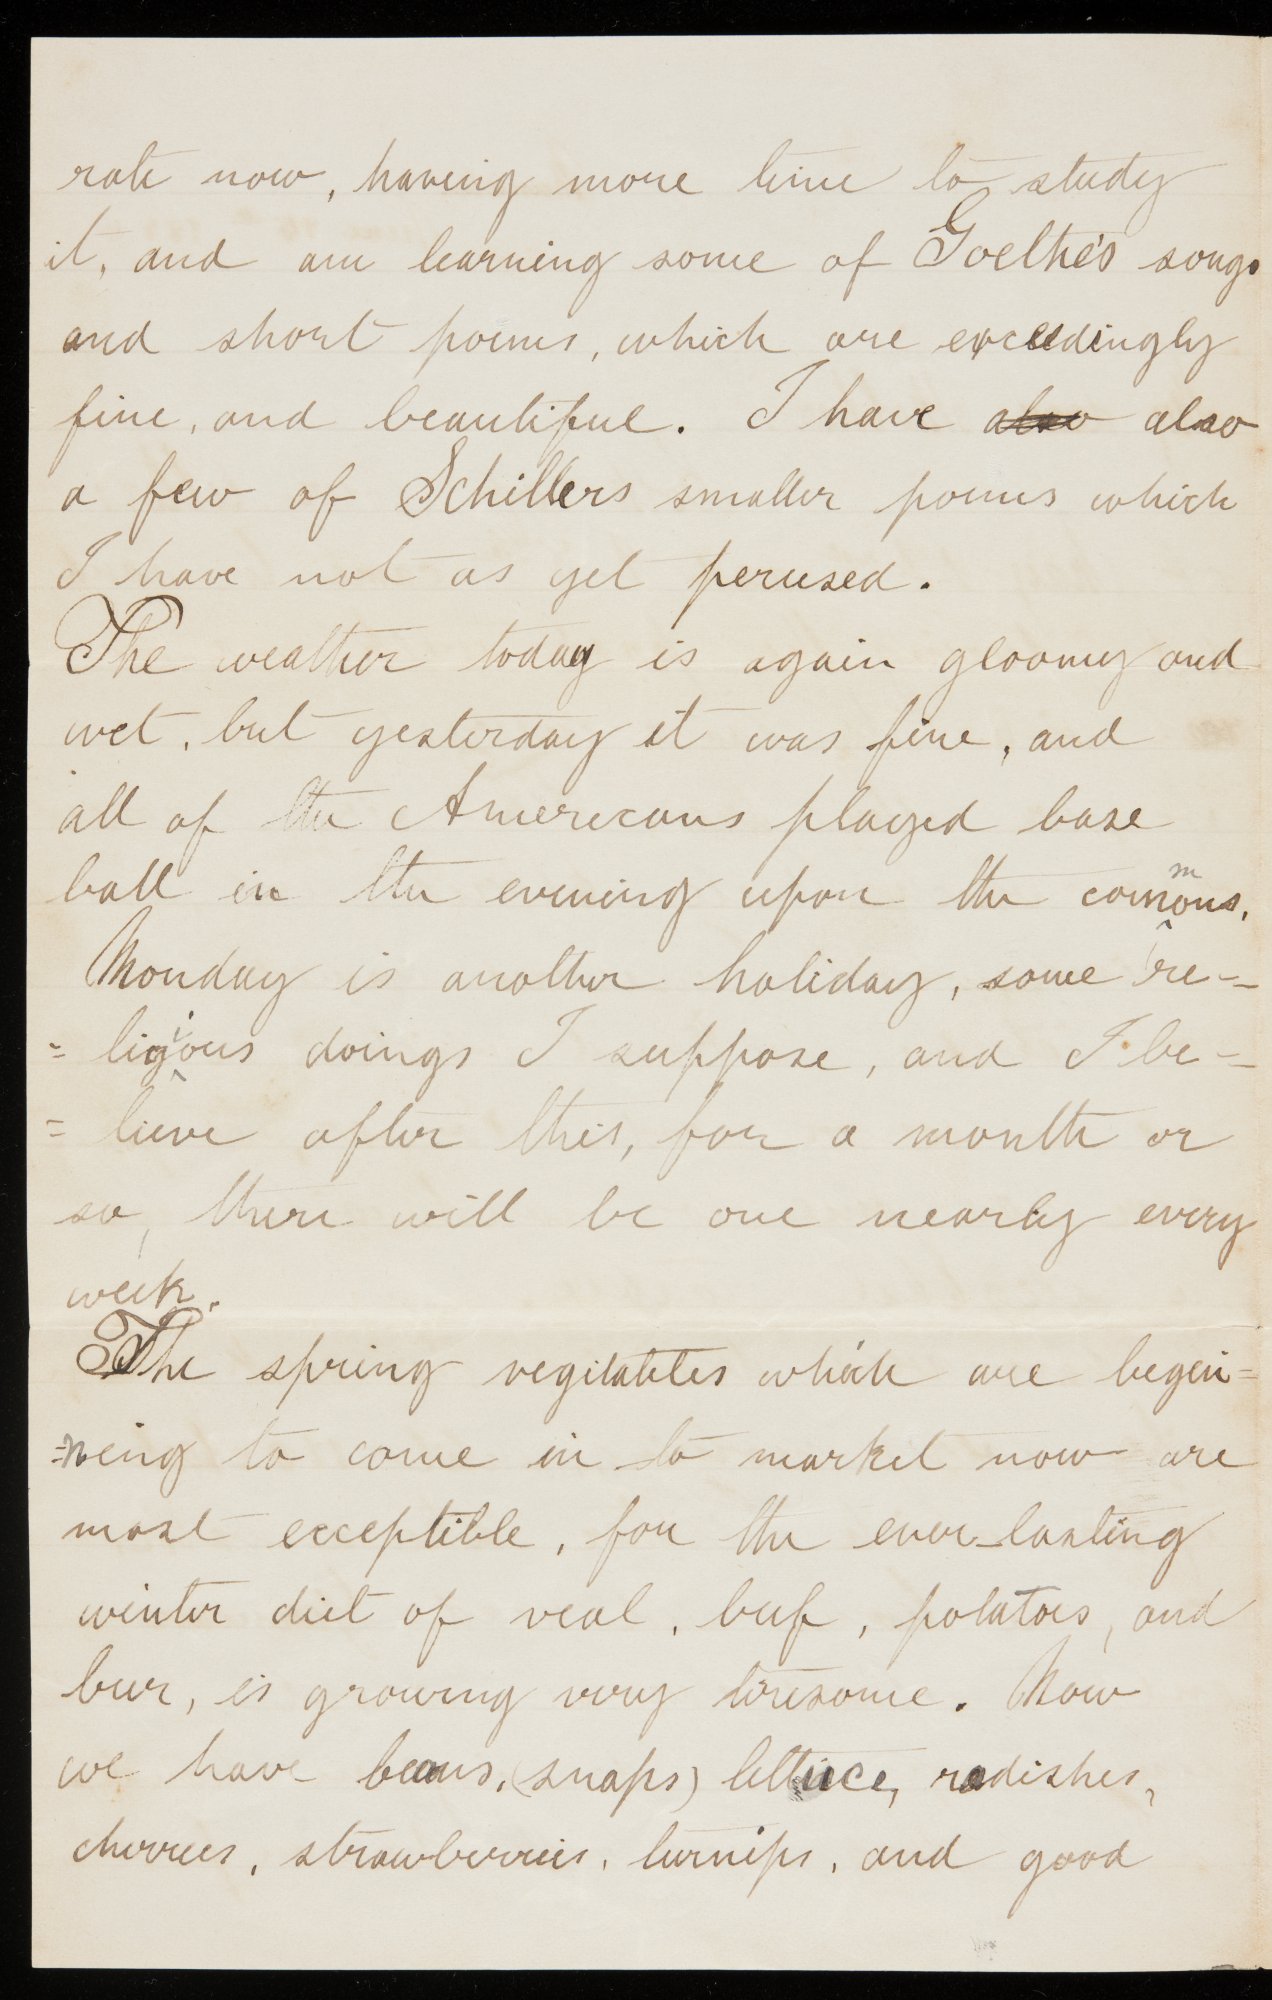 rate now, having more time to study
it, and am learning some of Goethe's songs
and short poems, which are exceedingly
fine, and beautiful. I have also also
a few of Schillers smaller poems which
I have not as yet perused.
The weather today is again gloomy and
wet, but yesterday it was fine, and
all of the Americans played base
ball in the evening upon the commons.
Monday is another holiday, some re-
=ligious doings I suppose, and I be-
=lieve after this, for a month or
so, there will be one nearly every
week.
The spring vegitables which are begin=
=neing to come in to market now are
most exceptible, for the ever-lasting
winter diet of veal, beef, potatoes, and
beer, is growing very tiresome. Now
we have beans, (snaps) lettuce, radishes,
cherries, strawberries, turnips, and good